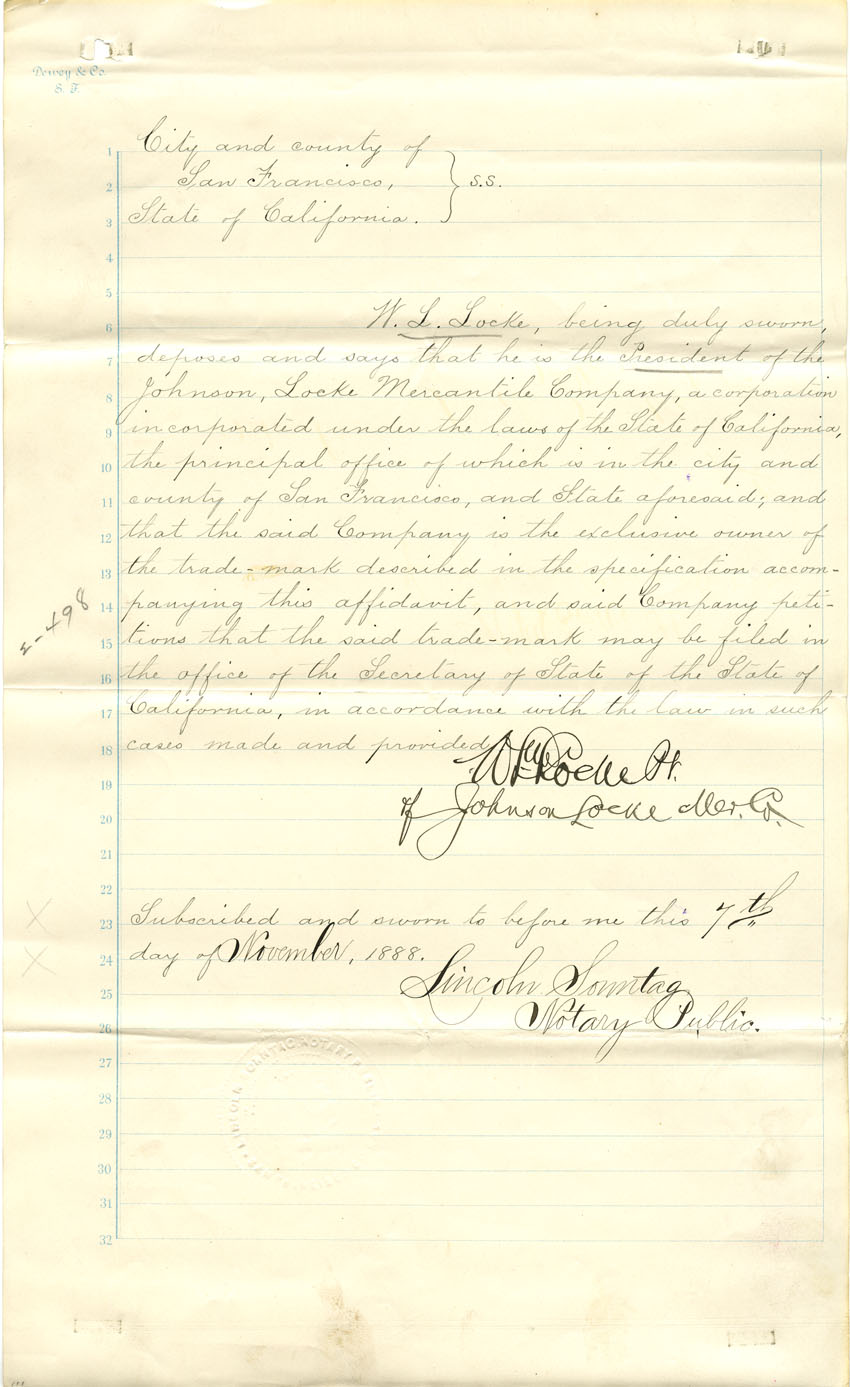 Dewey & Co.
S. F.
1 City and county of
2 San Francisco, } s.s.
3 State of California.
4
5
6 W. L. Locke, being duly sworn,
7 deposes and says that he is the President of the
8 Johnson, Locke Mercantile Company, a corporation
9 incorporated under the laws of the State of California,
10 the principal office of which is in the city and
11 county of San Francisco, and State aforesaid; and
12 that the said Company is the exclusive owner of
13 the trade-mark described in the specification accom-
14 panying this affidavit, and said Company peti-
15 tions that the said trade-mark may be filed in
16 the office of the Secretary of State of the State of
17 California, in accordance with the law in such
18 cases made and provided.
Locke Pt.
19
20 of Johnson Locke Mer. Co.
21
22
23 Subscribed and sworn to before me this 7th
24 day of November, 1888.
25 Lincoln Sonntag
26 Notary Public.
27
28
29
30
31
32
498